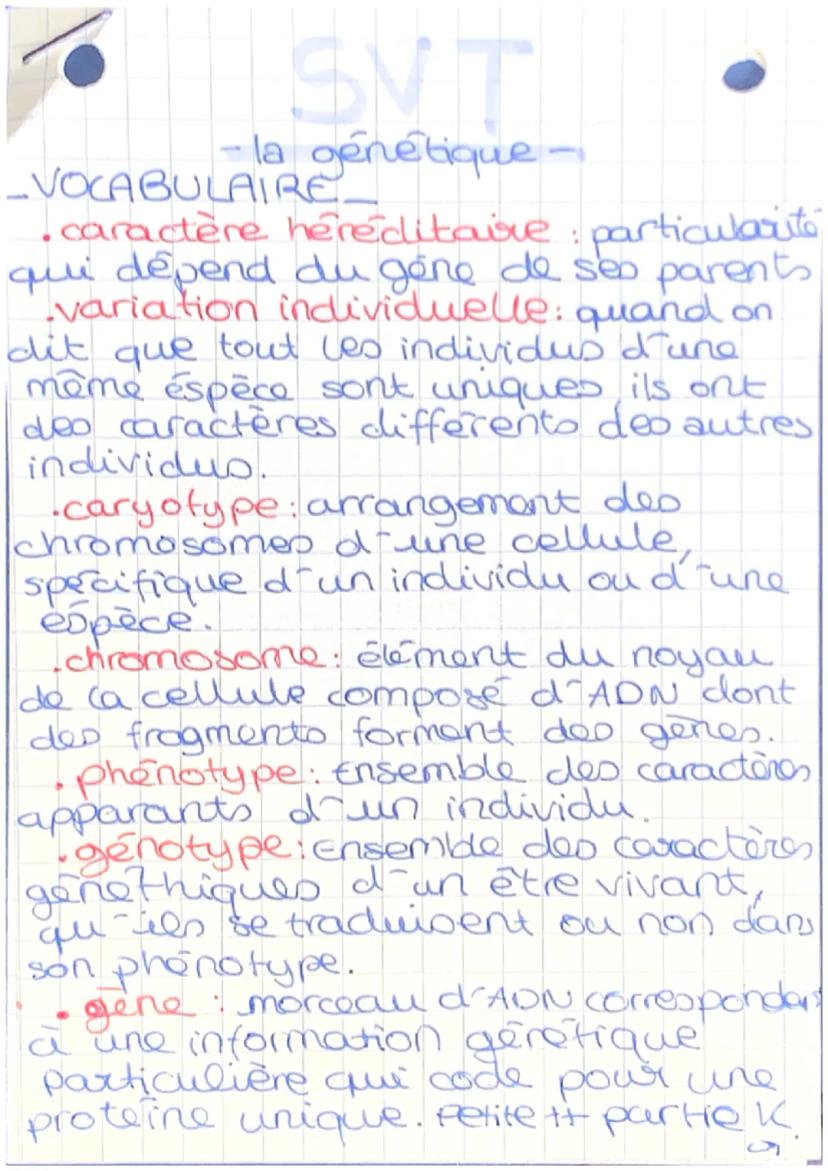 SVT
- la génétique -
- VOCABULAIRE -
. caractère héréditaire : particularité
qui dépend du gène de ses parents
. variation individuelle : quand on
dit que tout les individus d'une
même éspèce sont uniques, ils ont
des caractères différents des autres
individus.
. caryotype : arrangement des
chromosomes d'une cellule,
spécifique d'un individu ou d'une
espèce.
. chromosome : élément du noyau
de la cellule composé d'ADN dont
des fragments forment des gènes.
. phénotype : Ensemble des caractères
apparants d'un individu.
. génotype : Ensemble des caractères
génethiques d'un être vivant,
qu'ils se traduisent ou non dans
son phénotype.
. gène : morceau d'ADN correspondant
à une information génétique
particulière qui code pour une
protéine unique. Petite tt partie K